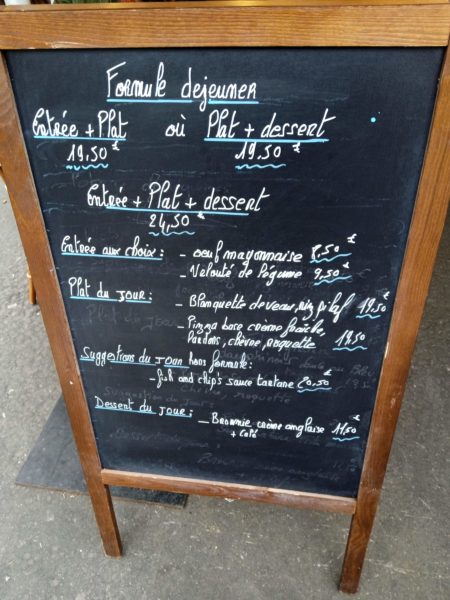 Formule dejeuner
Entrée + Plat où Plat + dessert
19,50€ 19,50€
Entrée + Plat + dessert
24,50€
Entrée aux choix: - oeuf mayonnaise 8,50€
- Velouté de légume 9,50€
Plat du jour: - Blanquette de veau, riz pilaf 19,50€
- Pizza base crème fraîche,
lardons, chèvre, roquette 19,50€
Suggestions du jour hors formule:
- fish and chip's sauce tartare 20,50€
Dessert du jour: - Brownie crème anglaise 11,50€
+ café